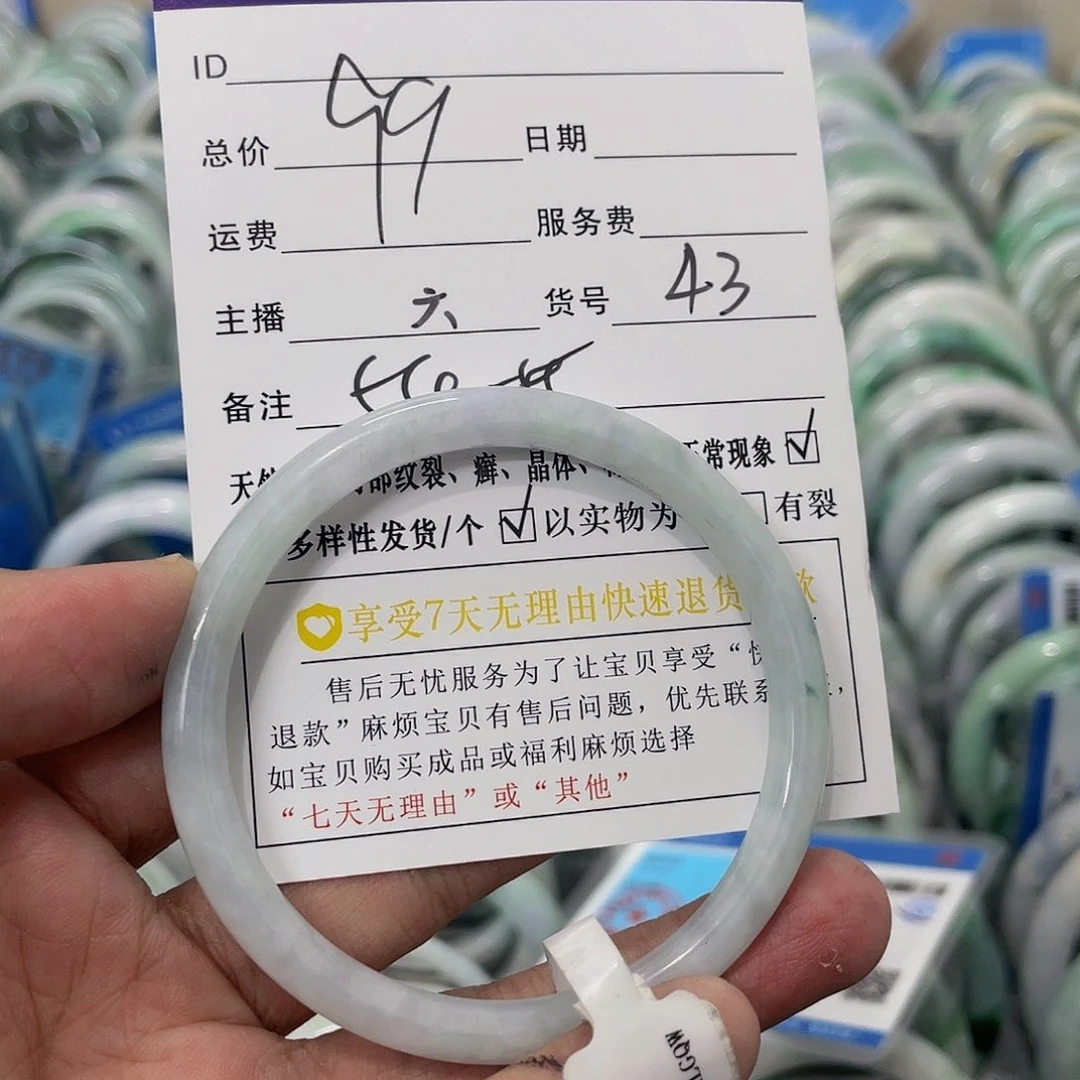 ID
总价 99 日期
运费 服务费
主播 六 货号 43
备注
天 部纹裂、癣、晶体、 正常现象 ☑
多样性发货/个 ☑ 以实物为 □ 有裂
享受7天无理由快速退货 款
售后无忧服务为了让宝贝享受“快
退款”麻烦宝贝有售后问题，优先联系
如宝贝购买成品或福利麻烦选择
“七天无理由”或“其他”